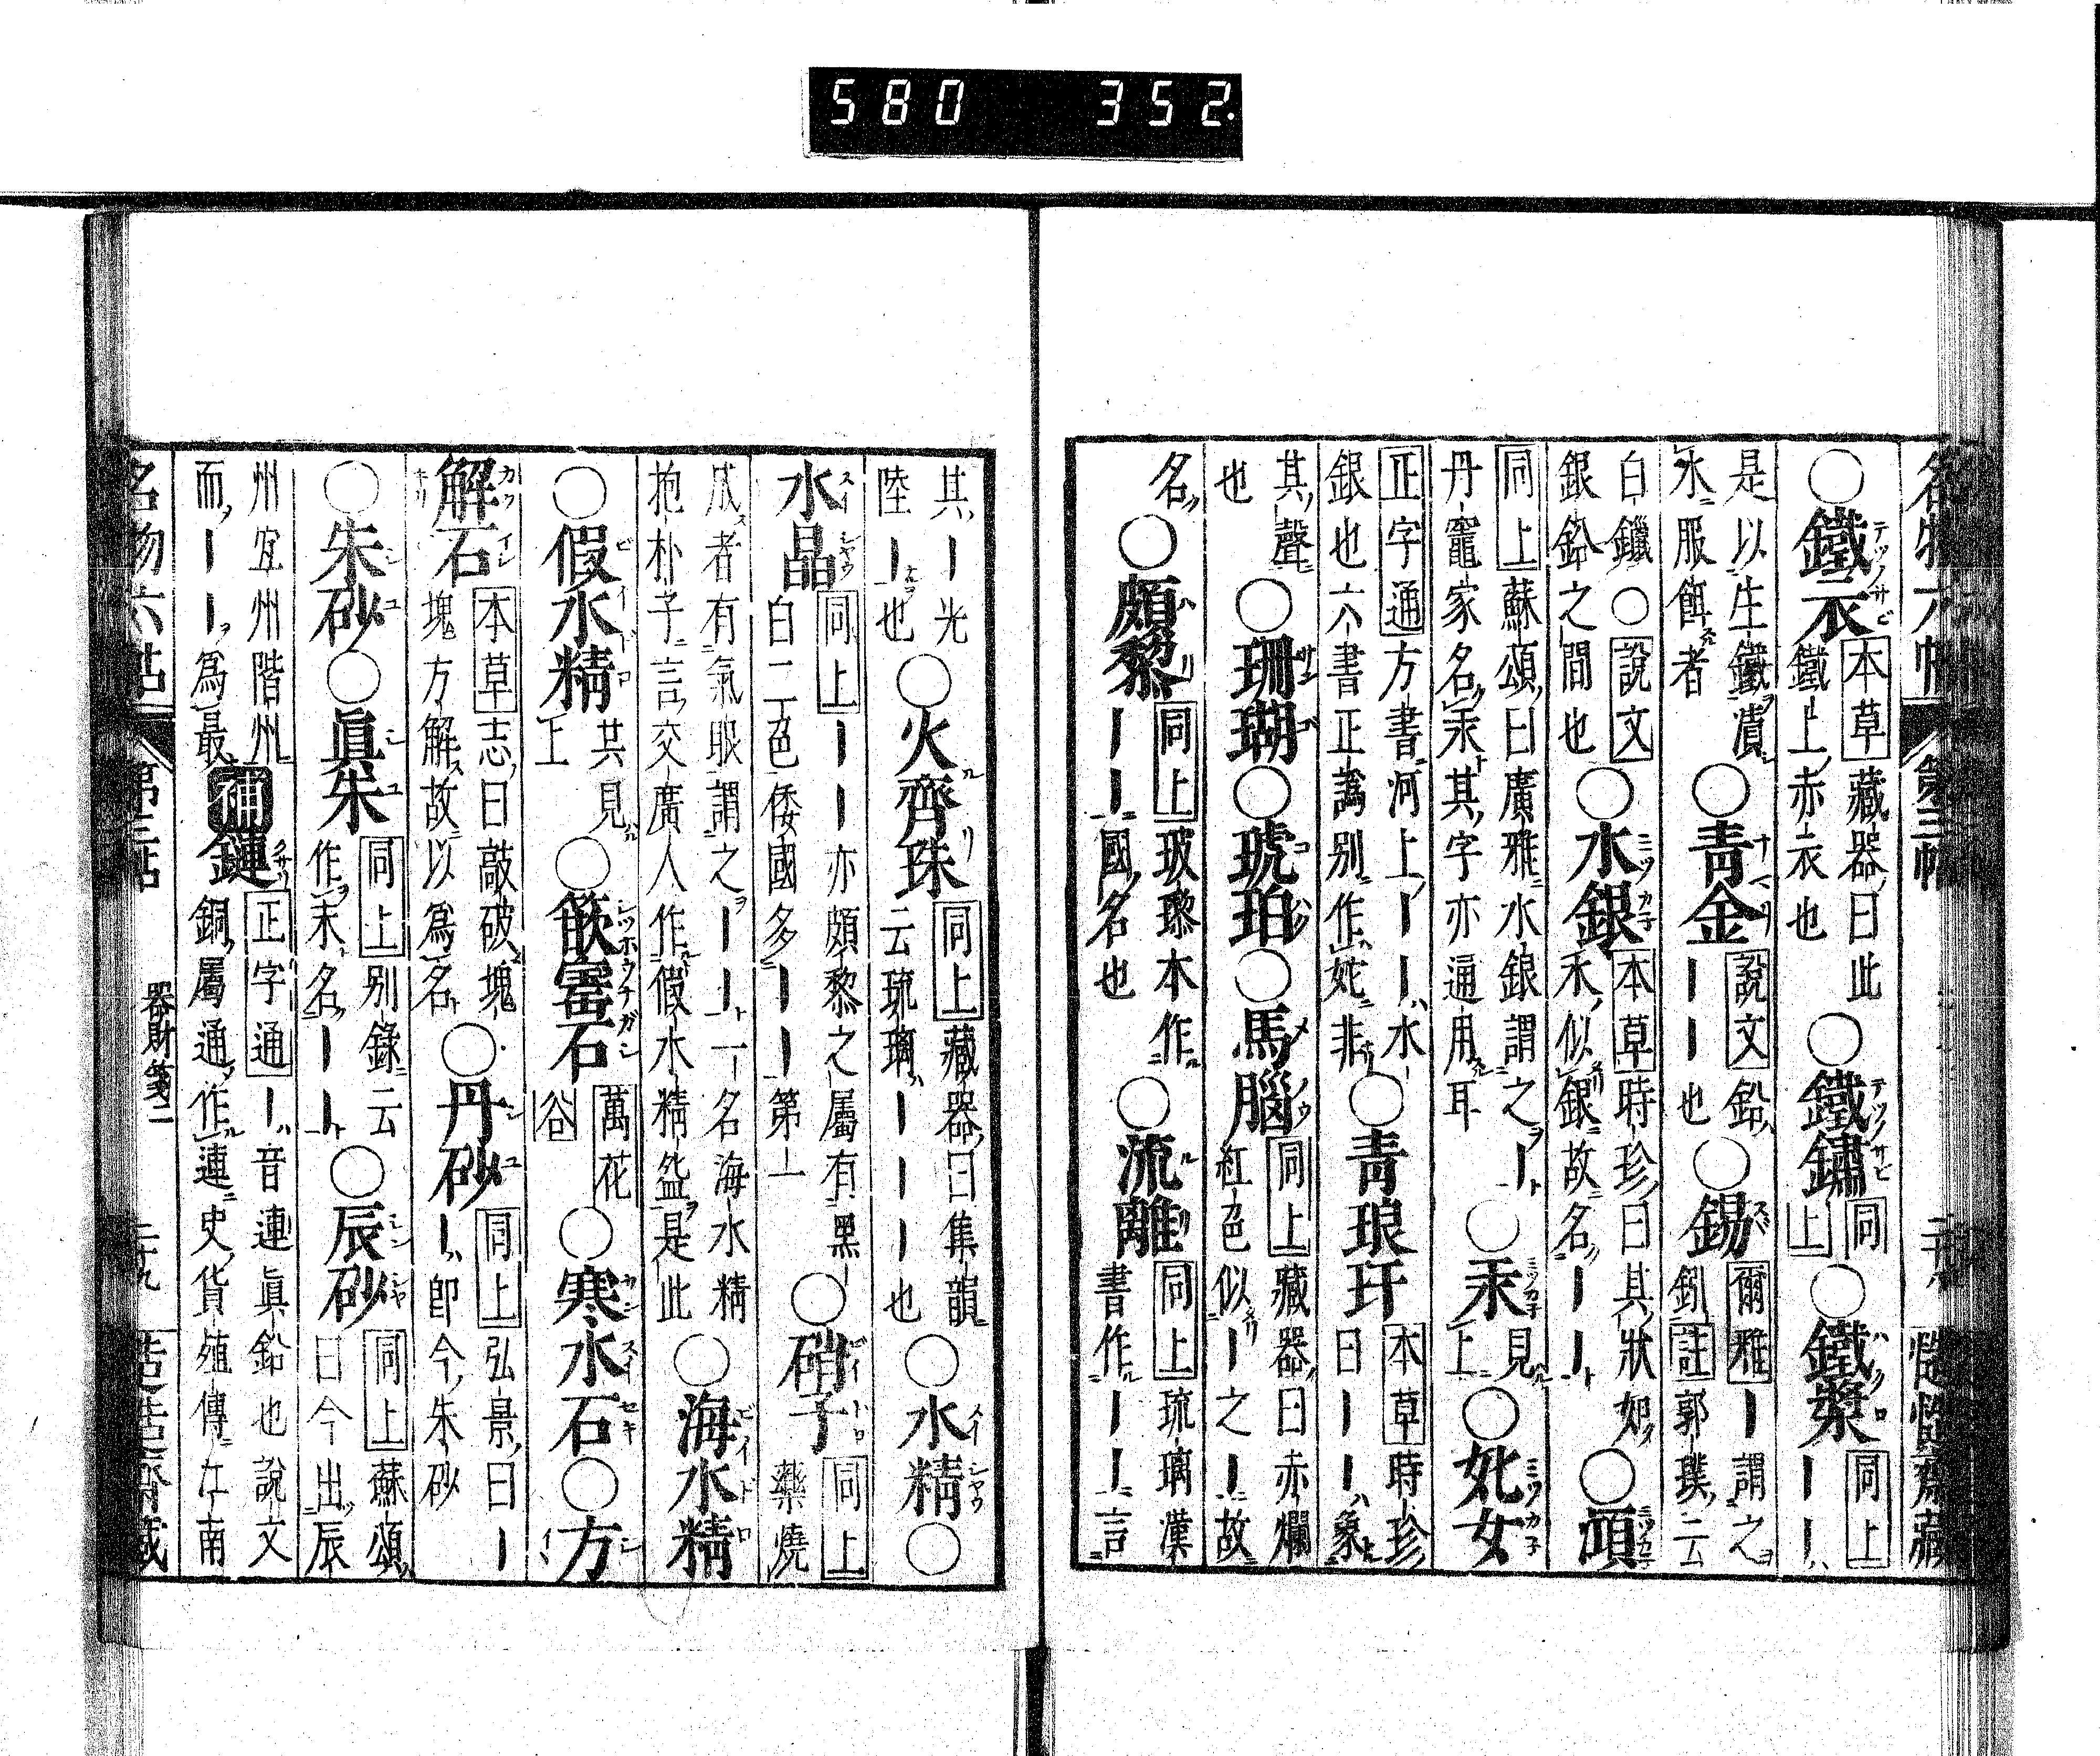 580 352.
名物六帖 第三帖 二十八 慥慥齋藏
○鐵衣 本草 藏器曰此鐵上赤衣也 ○鐵鏽 同上 ○鐵漿 同上 ーー
是以生鐵漬水服餌者 ○青金 說文 鉛ーー也 ○錫 爾雅 ー謂之鈏 註 郭璞云
白鑞 ○ 說文 銀鉛之間也 ○水銀 本草 時珍曰其狀如水似銀故名ーー ○澒
同上 蘇頌曰廣雅水銀謂之ー丹竈家名汞其字亦通用耳 ○汞 見上 ○奼女
正字通 方書河上ーー水銀也六書正譌別作奼非 ○青琅玕 本草 時珍曰ーー象
其聲也 ○珊瑚 ○琥珀 ○馬腦 同上 藏器曰赤爛紅色似ー之ー故
名 ○頗黎 同上 玻瓈本作ーー國名也 ○流離 同上 琉璃漢書作ーー言
其ー光陸ー也 ○火齊珠 同上 藏器曰集韻云琉璃ーーー也 ○水精 ○
水晶 同上 ーー亦頗黎之屬有黑白二色倭國多ーー第一 ○硝子 同上 藥燒
成者有氣眼謂之ーー一名海水精抱朴子言交廣人作假水精盌是此 ○海水精
○假水精 共見上 ○嵌窑石 萬花谷 ○寒水石 ○方
解石 本草 志曰敲破塊塊方解故以爲名 ○丹砂 同上 弘景曰ーー即今朱砂
○朱砂 ○眞朱 同上 別錄云作末名ーー ○辰砂 同上 蘇頌曰今出辰
州宜州階州而ーー爲最 補 鏈 正字通 ー音連眞鉛也說文銅屬通作連史貨殖傳江南
名物六帖 第三帖 器財箋二 二十九